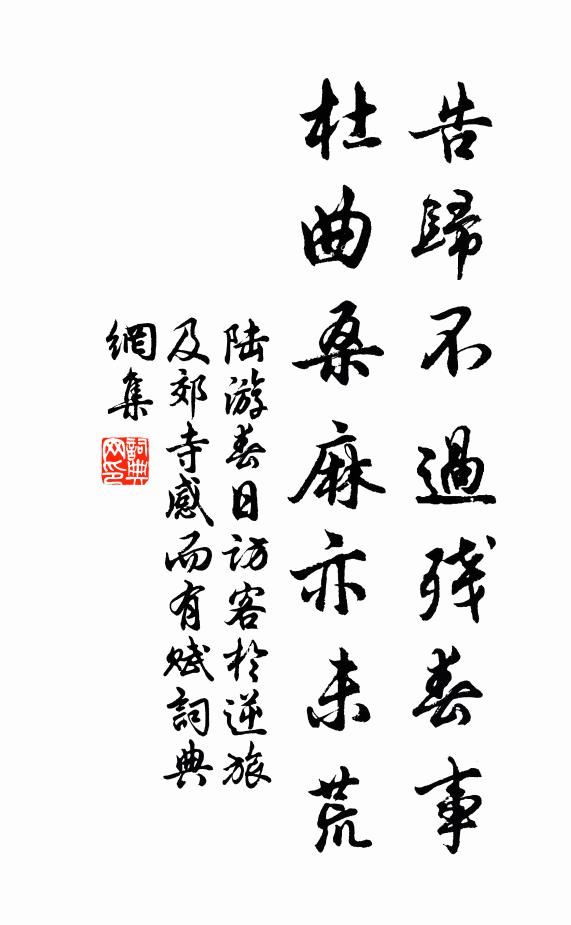 告歸不過殘春事
杜曲桑麻亦未荒
陆游春日访客於逆旅
及郊寺感而有赋詞典
網集
詞典
网印